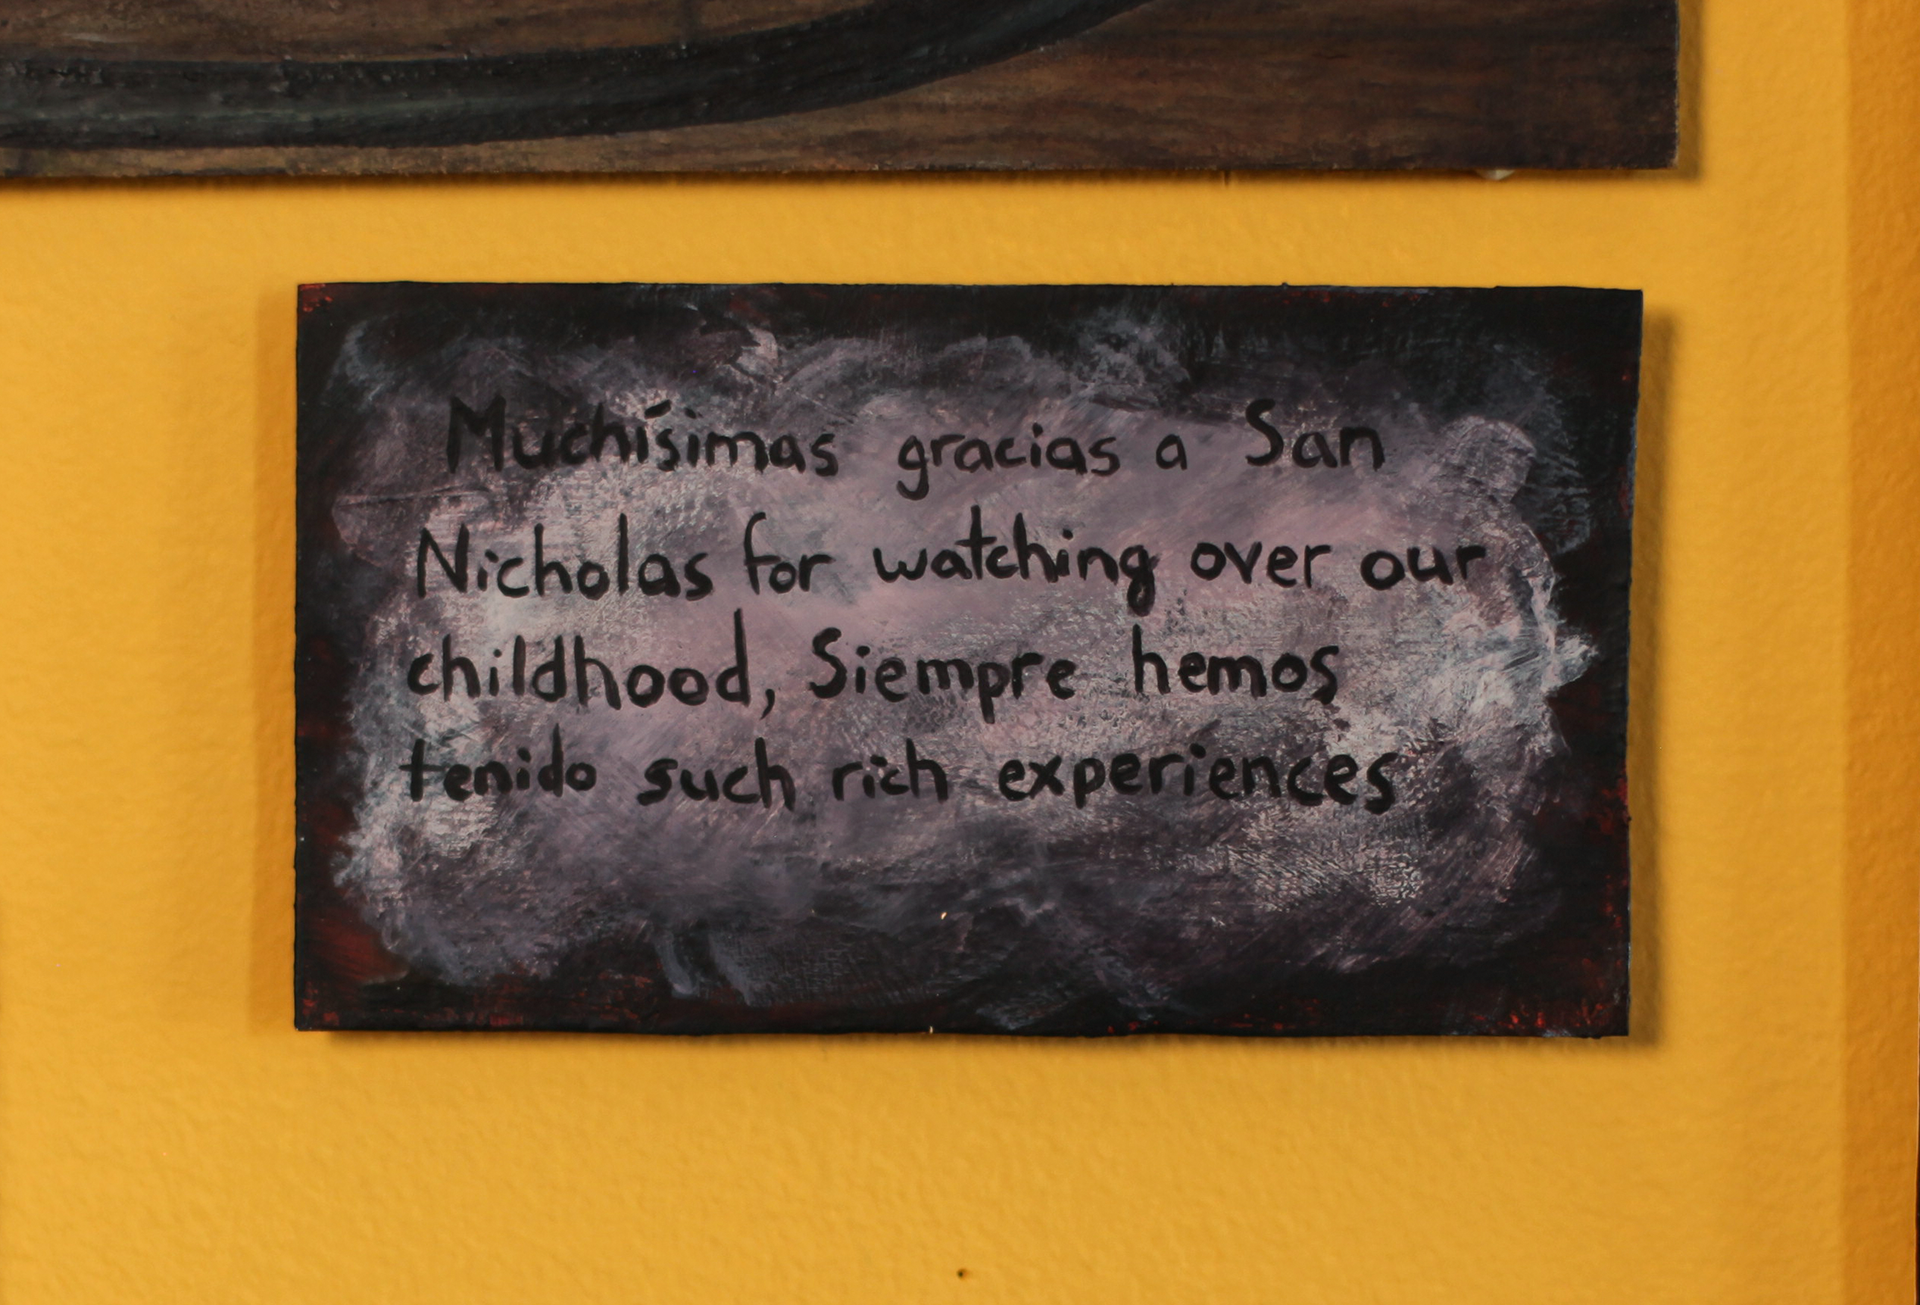 Muchísimas gracias a San
Nicholas for watching over our
childhood, Siempre hemos
tenido such rich experiences